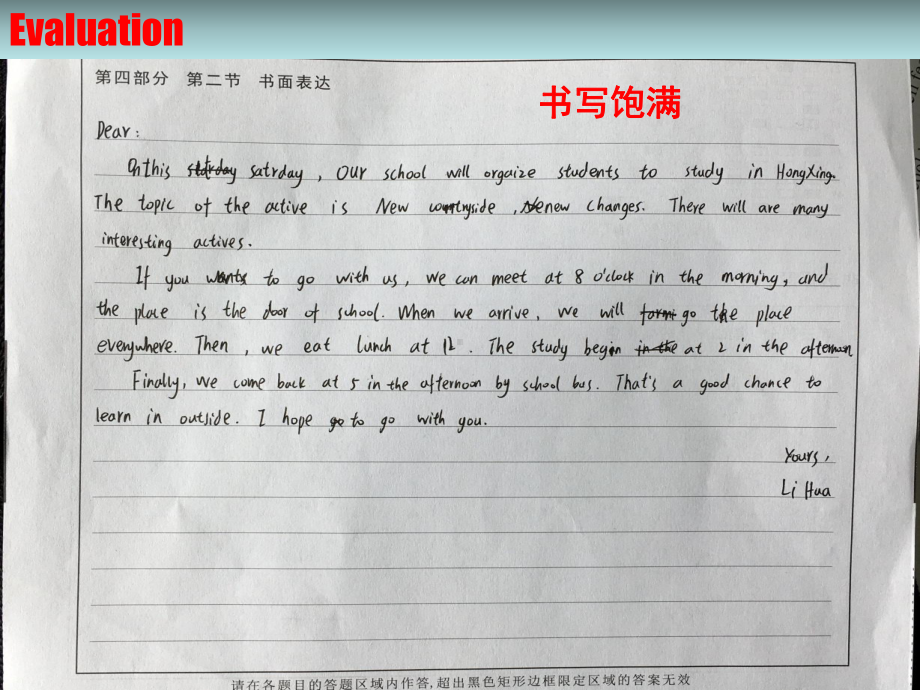 Evaluation
第四部分 第二节 书面表达
书写饱满
Dear:
On this satrday, our school will orgaize students to study in HongXing.
The topic of the active is New countryside, new changes. There will are many
interesting actives.
If you want to go with us, we can meet at 8 o'clock in the morning, and
the place is the door of school. When we arrive, we will go the place
everywhere. Then, we eat lunch at 12. The study begin at 2 in the afternoon
Finally, we come back at 5 in the afternoon by school bus. That's a good chance to
learn in outside. I hope to go with you.
Yours,
Li Hua
请在各题目的答题区域内作答,超出黑色矩形边框限定区域的答案无效